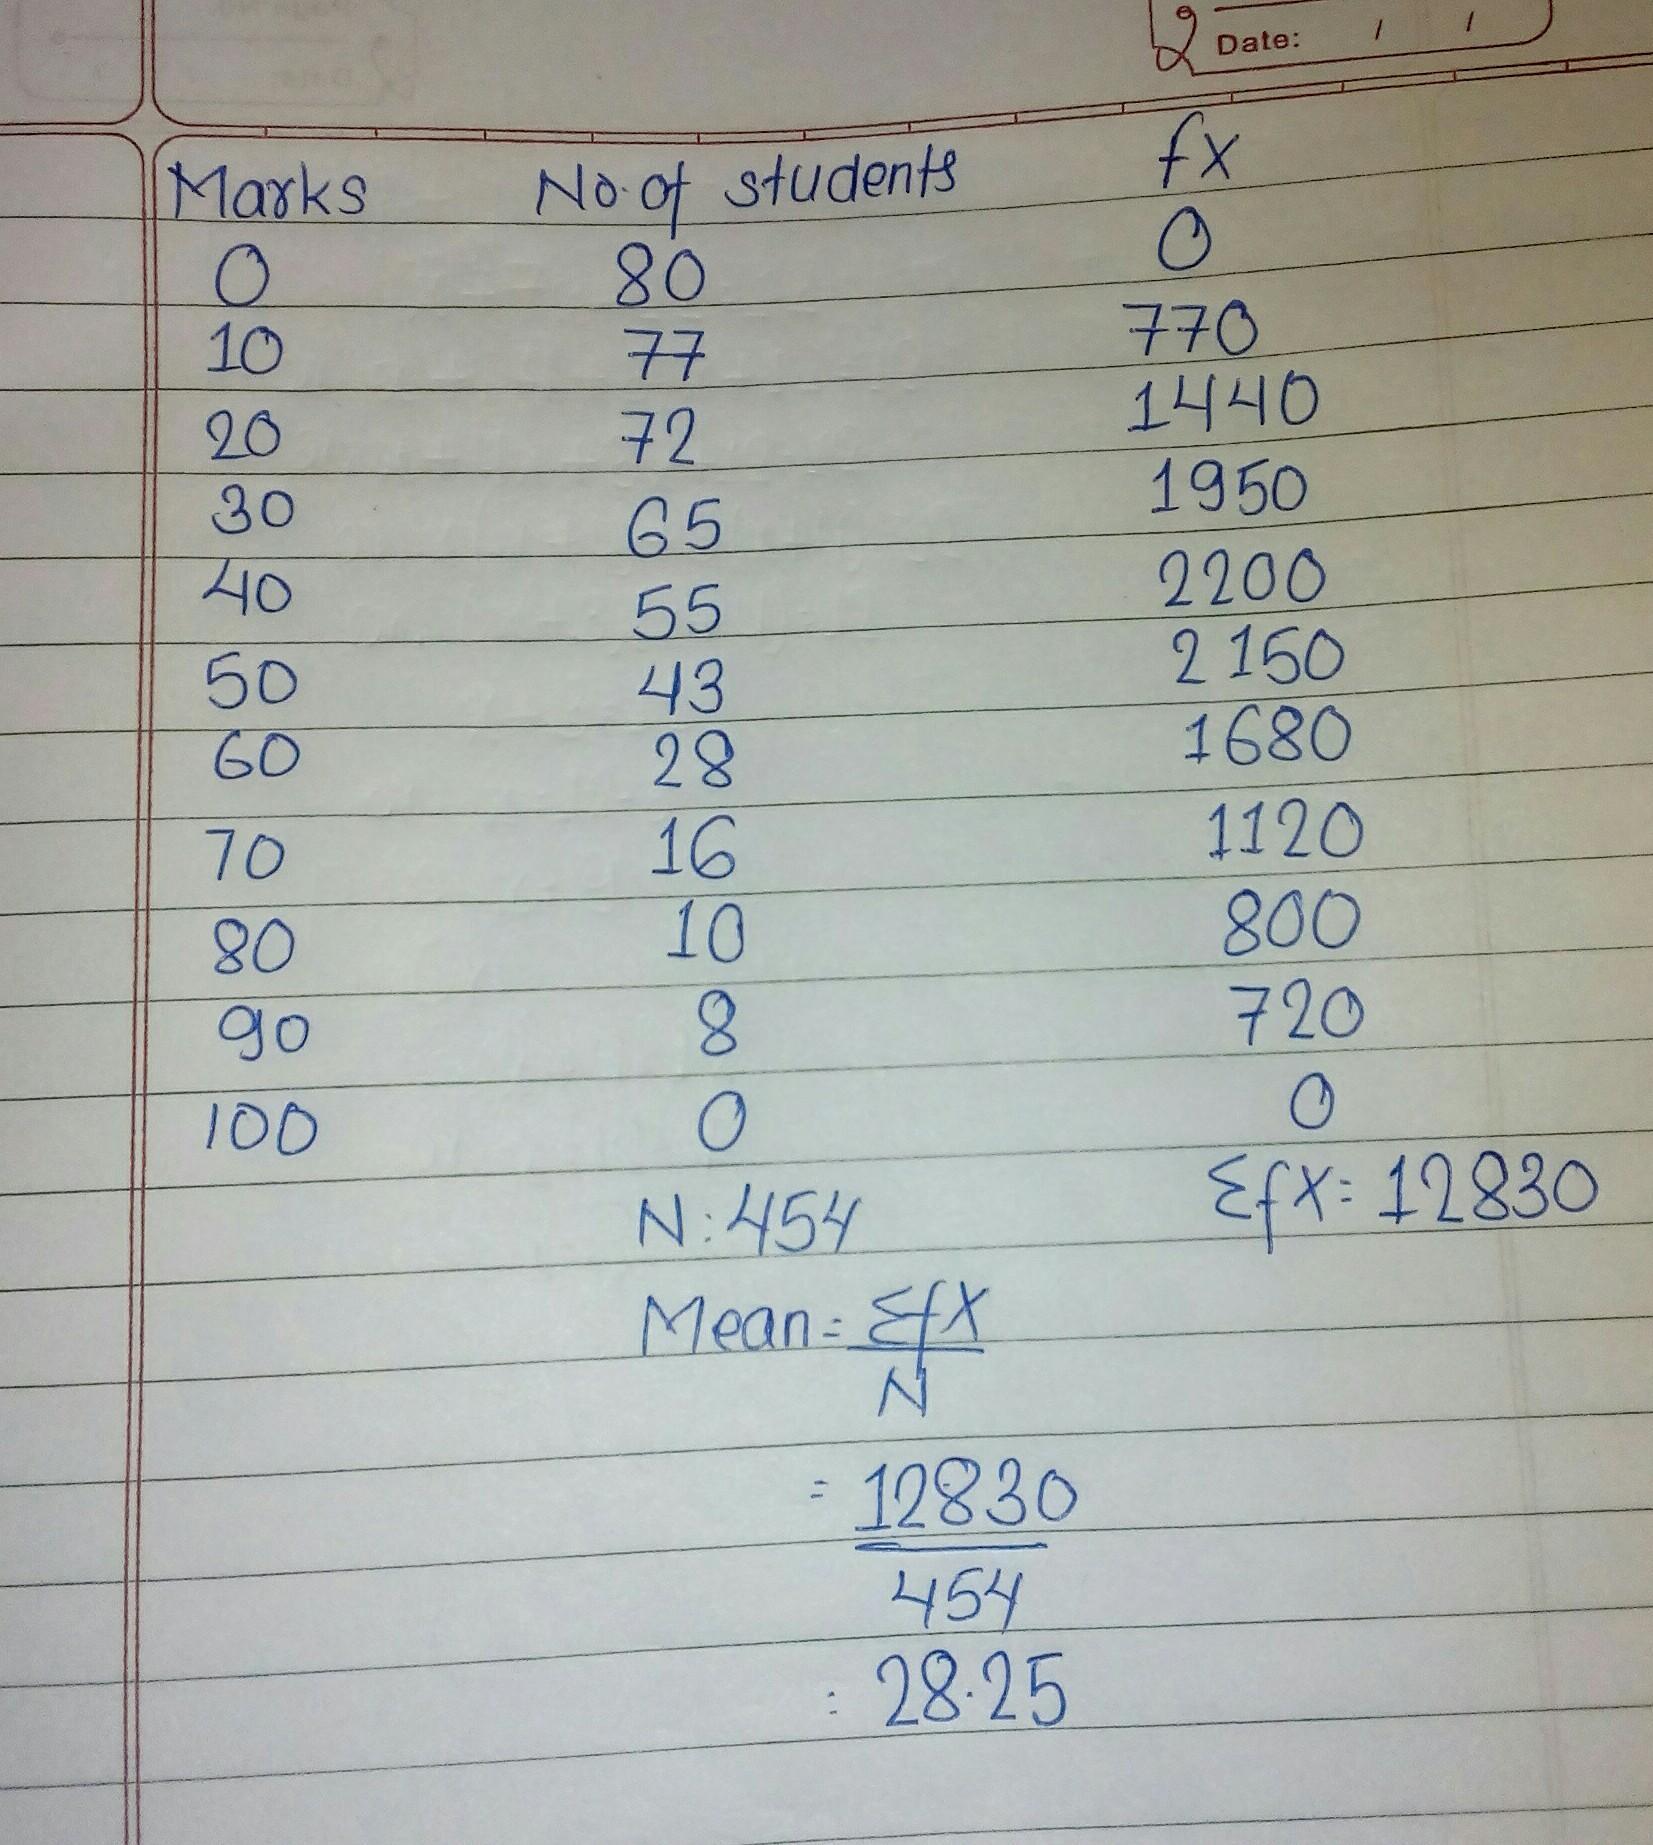 Date: / /
Marks No. of students fx
0 80 0
10 77 770
20 72 1440
30 65 1950
40 55 2200
50 43 2150
60 28 1680
70 16 1120
80 10 800
90 8 720
100 0 0
N: 454 Σfx = 12830
Mean = Σfx
N
= 12830
454
: 28.25